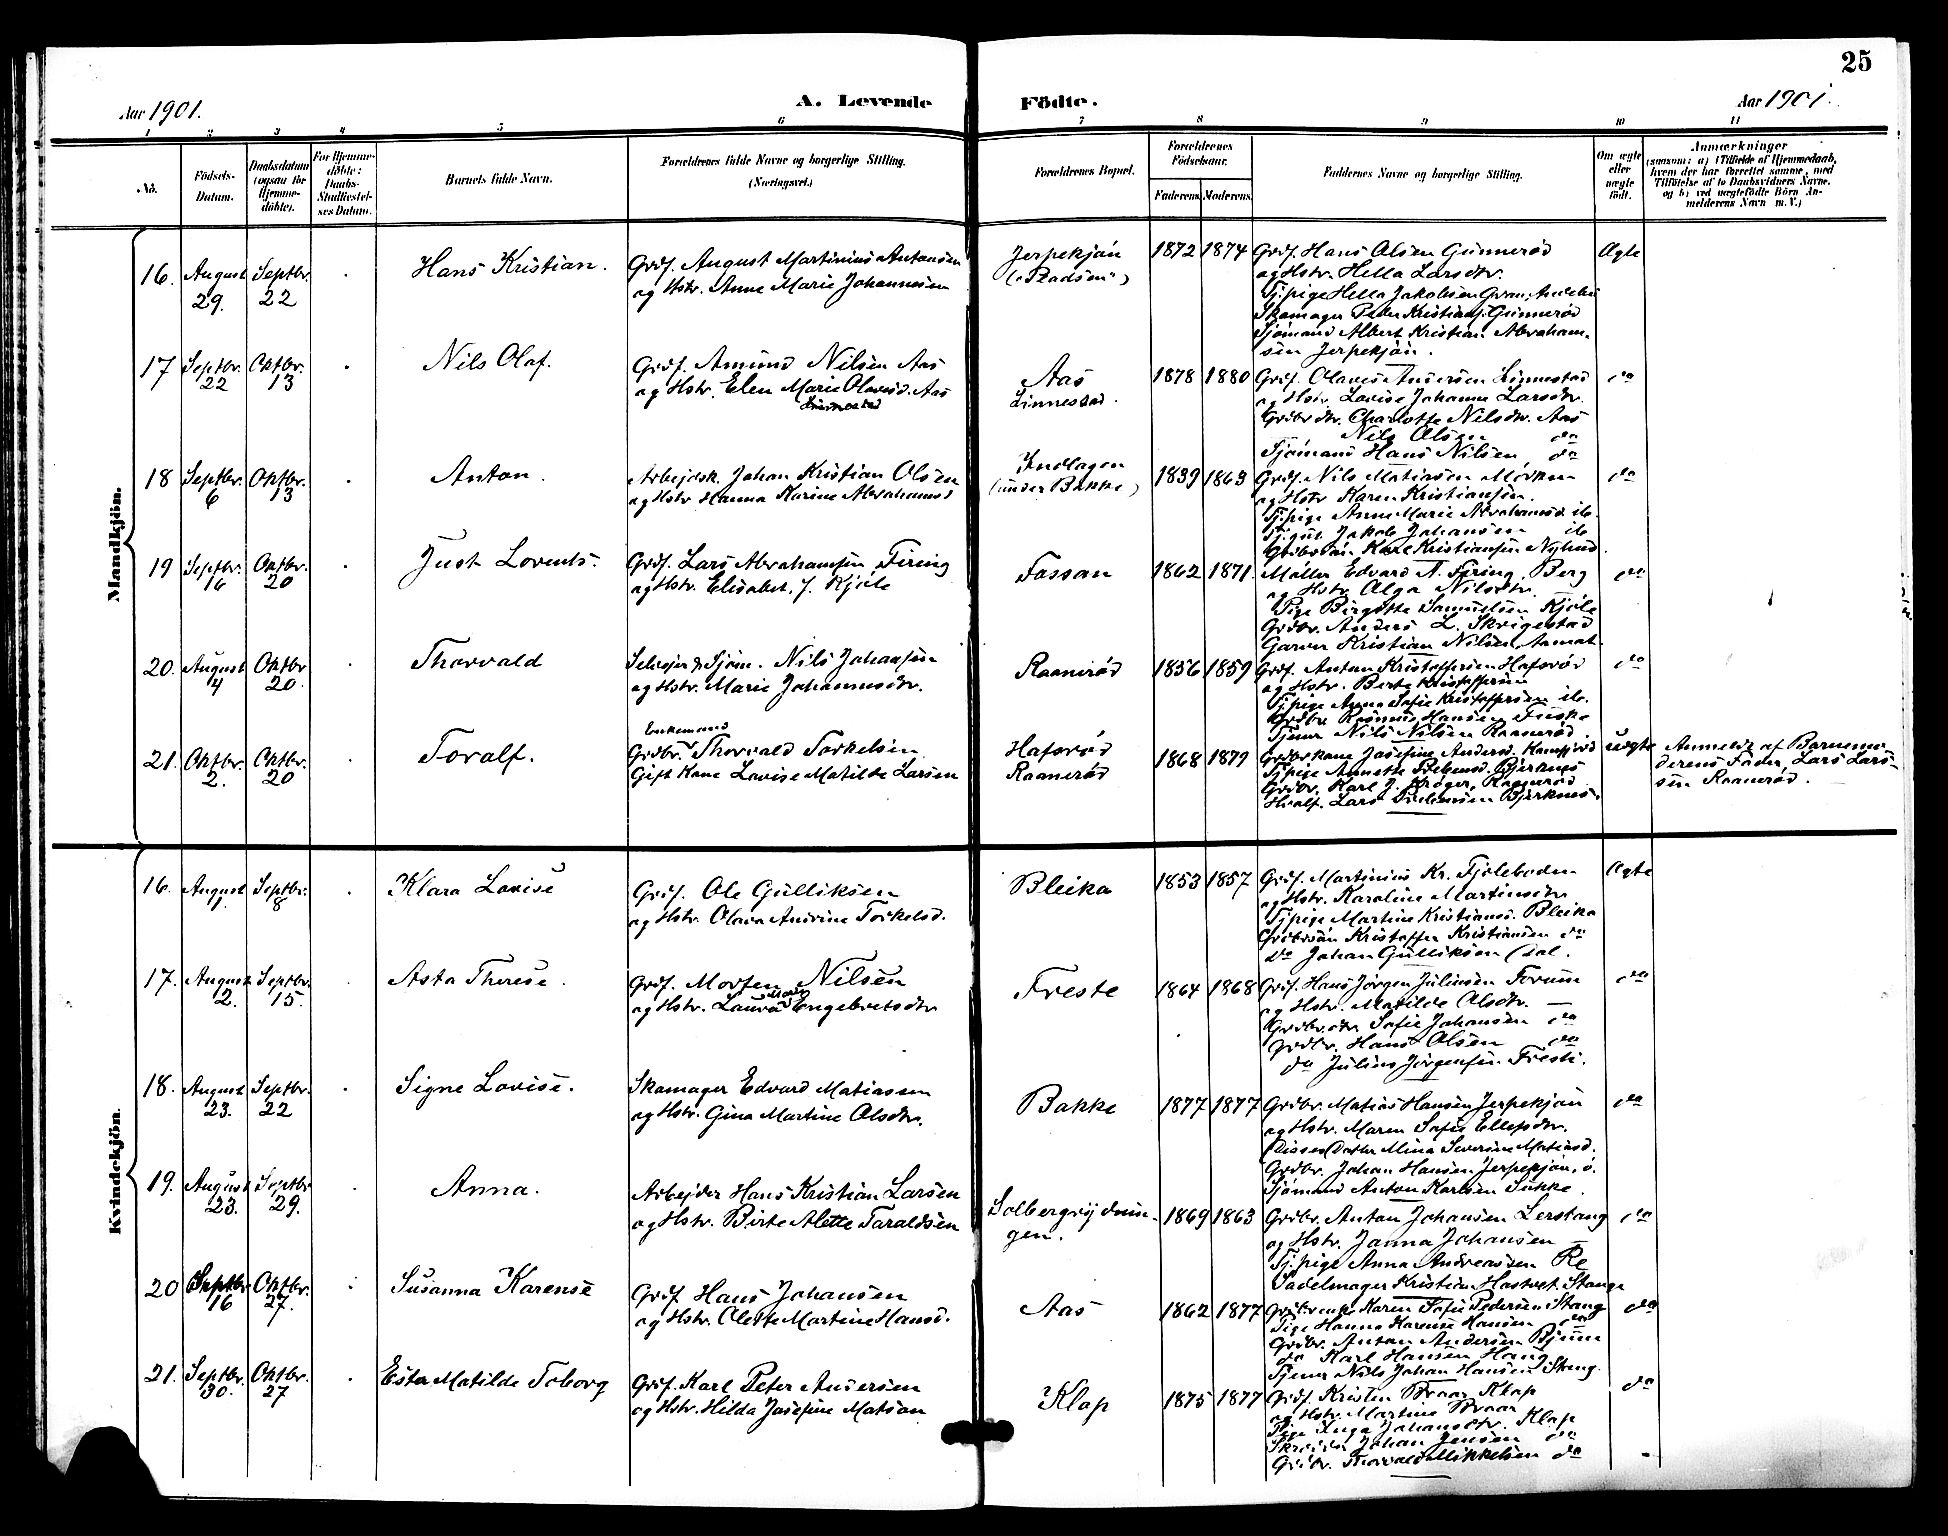 25
Aar 1901.
A. Levende Födte.
Aar 1901.
1 2 3 4 5 6 7 8 9 10 11
No.
Födsels-
Datum.
Daabsdatum
(ogsaa for
Hjemme-
döbte).
For Hjemme-
döbte:
Daabs-
Stadfæstel-
ses Datum.
Barnets fulde Navn.
Forældrenes fulde Navne og borgerlige Stilling.
(Næringsvei.)
Forældrenes Bopæl.
Forældrenes
Födselsaar.
Faderens. Moderens.
Faddernes Navne og borgerlige Stilling.
Om ægte
eller
uægte
födt.
Anmærkninger
(saasom: a) i Tilfælde af Hjemmedaab,
hvem der har forrettet samme, med
Tilföielse af to Daabsvidners Navne,
og b) ved uægtefödte Börn An-
melderens Navn m. V.)
Mandkjön.
16. August 29. Septbr. 22 Hans Kristian.
Grdf. August Martinius Antonsen
og Hstr. Anne Marie Johannesen
Jerpekjøn
("Pladsen")
1872 1874
Grdf. Hans Olsen Gunnerød
og Hstr. Hella Larsdtr.
Tj.pige Hella Jakobsen
Skomager Peder Kristians. Gunnerød
Sjømand Albert Kristian Abraham-
sen Jerpekjøn.
Ægte
17 Septbr. 22 Oktbr. 13 Nils Olaf.
Grdf. Amund Nilsen Aas
og Hstr. Elen Marie Olavesd. Aas
Linnestad
Aas
Linnestad.
1878 1880
Grdf. Olaves Andersen Linnestad
og Hstr. Lovise Johanne Larsdtr.
Grdbr.dtr. Charlotte Nilsdtr. Aas
Nils Olsen do
Sjømand Hans Nilsen do
do
18 Septbr. 6 Oktbr. 13 Anton.
Arbejdsk. Johan Kristian Olsen
og Hstr Hanna Karine Abrahamsd
Indlagen
(under Bakke)
1839 1863
Grdf. Nils Matiasen Mørken
og Hstr Karen Kristiansen.
Tj.pige Anne Marie Abrahamsd. ib.
Tj.gut. Jakob Johansen ib
Grdbr.søn Karl Kristiansen Nylund.
do
19 Septbr. 16 Oktbr. 20 Just Lorents.
Grdf. Lars Abrahamsen Firing
og Hstr. Elisabet, f. Kjøle
Fossan
1862 1871.
Møller Edvard A. Firing, Berg
og Hstr Olga Nilsdtr.
Pige Birgitte Samuelsen Kjøle
Grdbr. Anders L. Skrigestad
Garver Kristian Nilsen
do
20. August 4 Oktbr 20. Thorvald
Selvejer & Sjøm. Nils Johansen
og Hstr. Marie Johannesdtr.
Raanerød
1856 1859
Grdf. Anton Kristoffersen Hafsrød
og Hstr. Berte Kristoffersen
Tj.pige Anna Sofie Kristoffersen ib.
Grdbr. Rasmus Hansen Fuske
Tjener Nils Nilsen Raanerød.
do
21. Oktbr. 2. Oktbr. 20 Toralf.
Enkemand
Grdbr. Thorvald Torkelsen
Gift Kone Lovise Matilde Larsen
Hafsrød
Raanerød
1868 1879
Grdbr.kone Josefine Andersd.
Tj.pige Annette Bjerknes
Grdbr. Karl J. Krøger, Raanerød
Lars Bjerknes.
Uægte
Anmeldt af Barnemo-
derens Fader, Lars Lars-
sen Raanerød.
Kvindekjön.
16. August 1. Septbr. 8 Klara Lovise
Grdf. Ole Gulliksen
og Hstr. Olava Andrine Torkelsd.
Bleika
1853 1857
Grdf. Martinius Kr. Fjeleboden
og Hstr. Karoline Martinsdtr
Tj.pige Martine Kristians. Bleika
Grdbr.søn Kristoffer Kristiansen do
do Johan Gulliksen Dal.
Ægte
17. August 2. Septbr. 15. Asta Therese.
Grdf. Morten Nilsen
og Hstr. Laura Engebretsdtr
Freste
1864 1868
Grdf. Hans Jørgen Julinsen Forum
og Hstr. Matilde Olsdtr. —
Grdbr.dtr Sofie Johansen do
Grdbr. Hans Olsen do
do Julius Jørgensen Freste.
do
18. August 23. Septbr. 22 Signe Lovise.
Skomager Edvard Matiassen
og Hstr. Gina Martine Olsdtr.
Bakke
1877 1877
Grdbr. Matias Hansen Jerpekjøn
og Hstr. Maren Sofie Ellefsdtr.
Disses Datter Mina Severine Matiasd.
Grdbr. Johan Hansen Jerpekjøn, ø.
Sjømand Anton Karlsen Sukke.
do
19. August 23. Septbr 29. Anna.
Arbejder Hans Kristian Larsen
og Hstr. Birte Alette Taraldsen
Solbergrydnin-
gen.
1869 1863
Grdbr. Anton Johansen Lerskang
og Hstr. Janna Johansen —
Tj.pige Anna Andreassen Re
Sadelmager Kristian Hostvet, Stange
do
20 Septbr 16 Oktbr. 27. Susanna Karense
Grdf Hans Johansen
og Hstr. Olette Martine Hansd.
Aas
1862 1877
Grdbr.enke Karen Sofie Pedersen Stang
Pige Hanna Karense Hansen do
Grdbr. Anton Andersen Bjune
do Karl Hansen Haug
Tjener Nils Johan Hansen Stang.
do
21. Septbr. 30. Oktbr. 27 Ester Matilde Toborg
Grdf. Karl Peter Andersen
og Hstr. Hilda Josefine Matson
Klop
1875 1877
Grdf. Kristen Braar Klop
og Hstr. Martine Braar
Pige Inga Johansdtr. Klop
Johan Jensen do
Grdbr. Thorvald Mikkelsen do
do